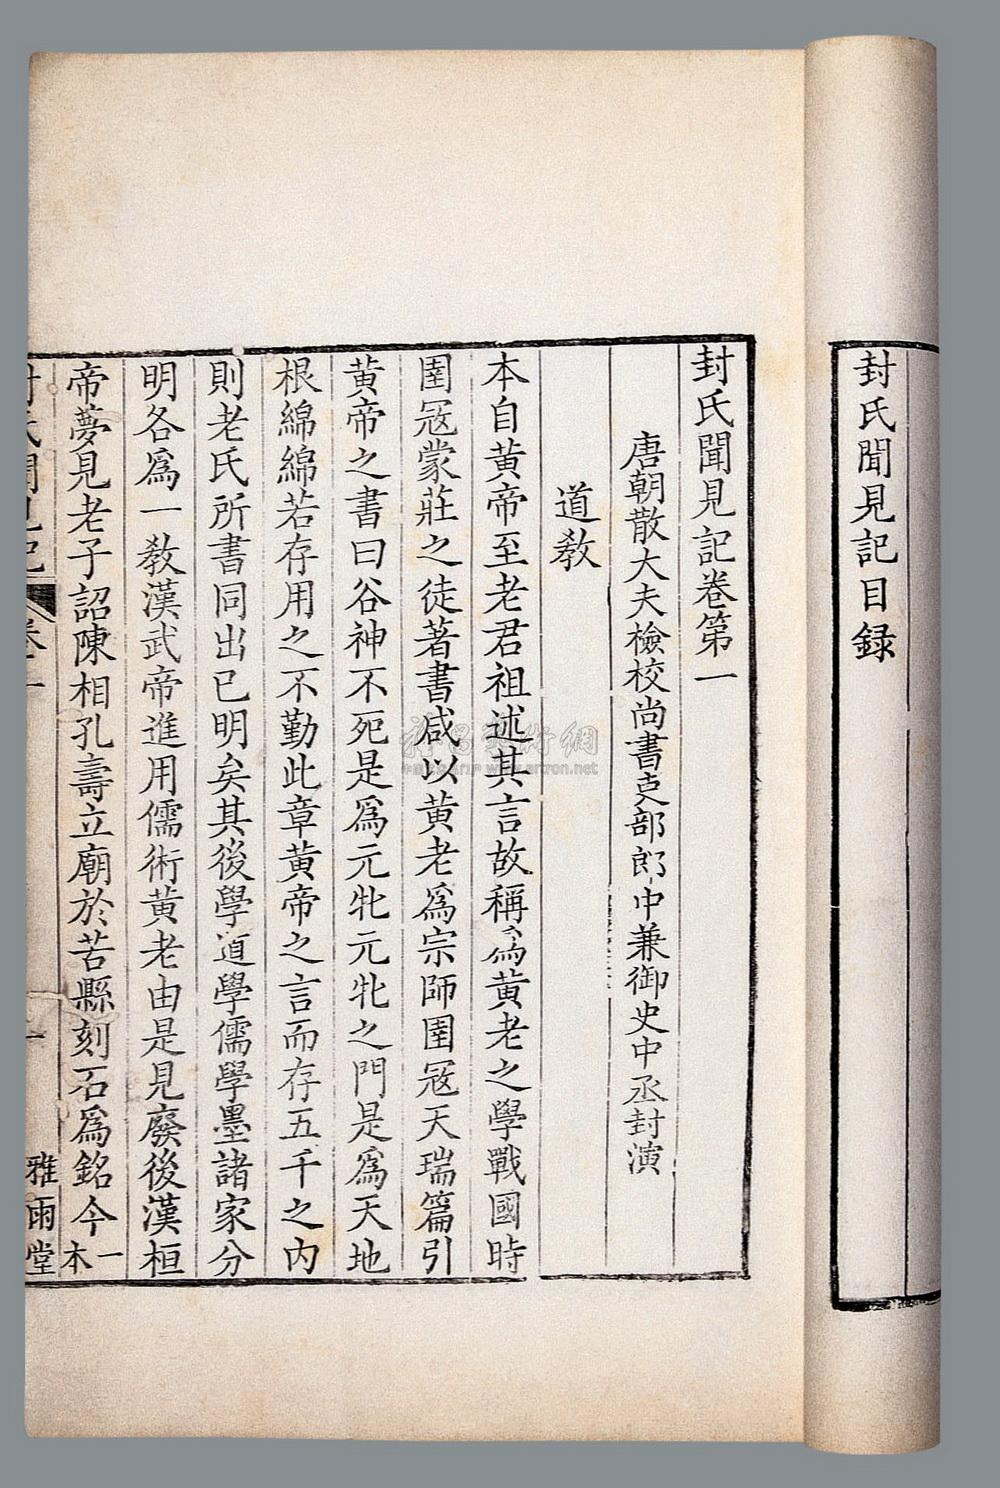 封氏聞見記目録
封氏聞見記卷第一
唐朝散大夫檢校尚書吏部郎中兼御史中丞封演
道教
本自黃帝至老君祖述其言故稱為黃老之學戰國時
圄寇蒙莊之徒著書咸以黃老爲宗師圄寇天瑞篇引
黃帝之書曰谷神不死是爲元牝元牝之門是爲天地
根綿綿若存用之不勤此章黃帝之言而存五千之内
則老氏所書同出已明矣其後學道學儒學墨諸家分
明各爲一教漢武帝進用儒術黃老由是見廢後漢桓
帝夢見老子詔陳相孔壽立廟於苦縣刻石爲銘今一本
封氏聞見記
卷一
一
雅雨堂
www.artron.net